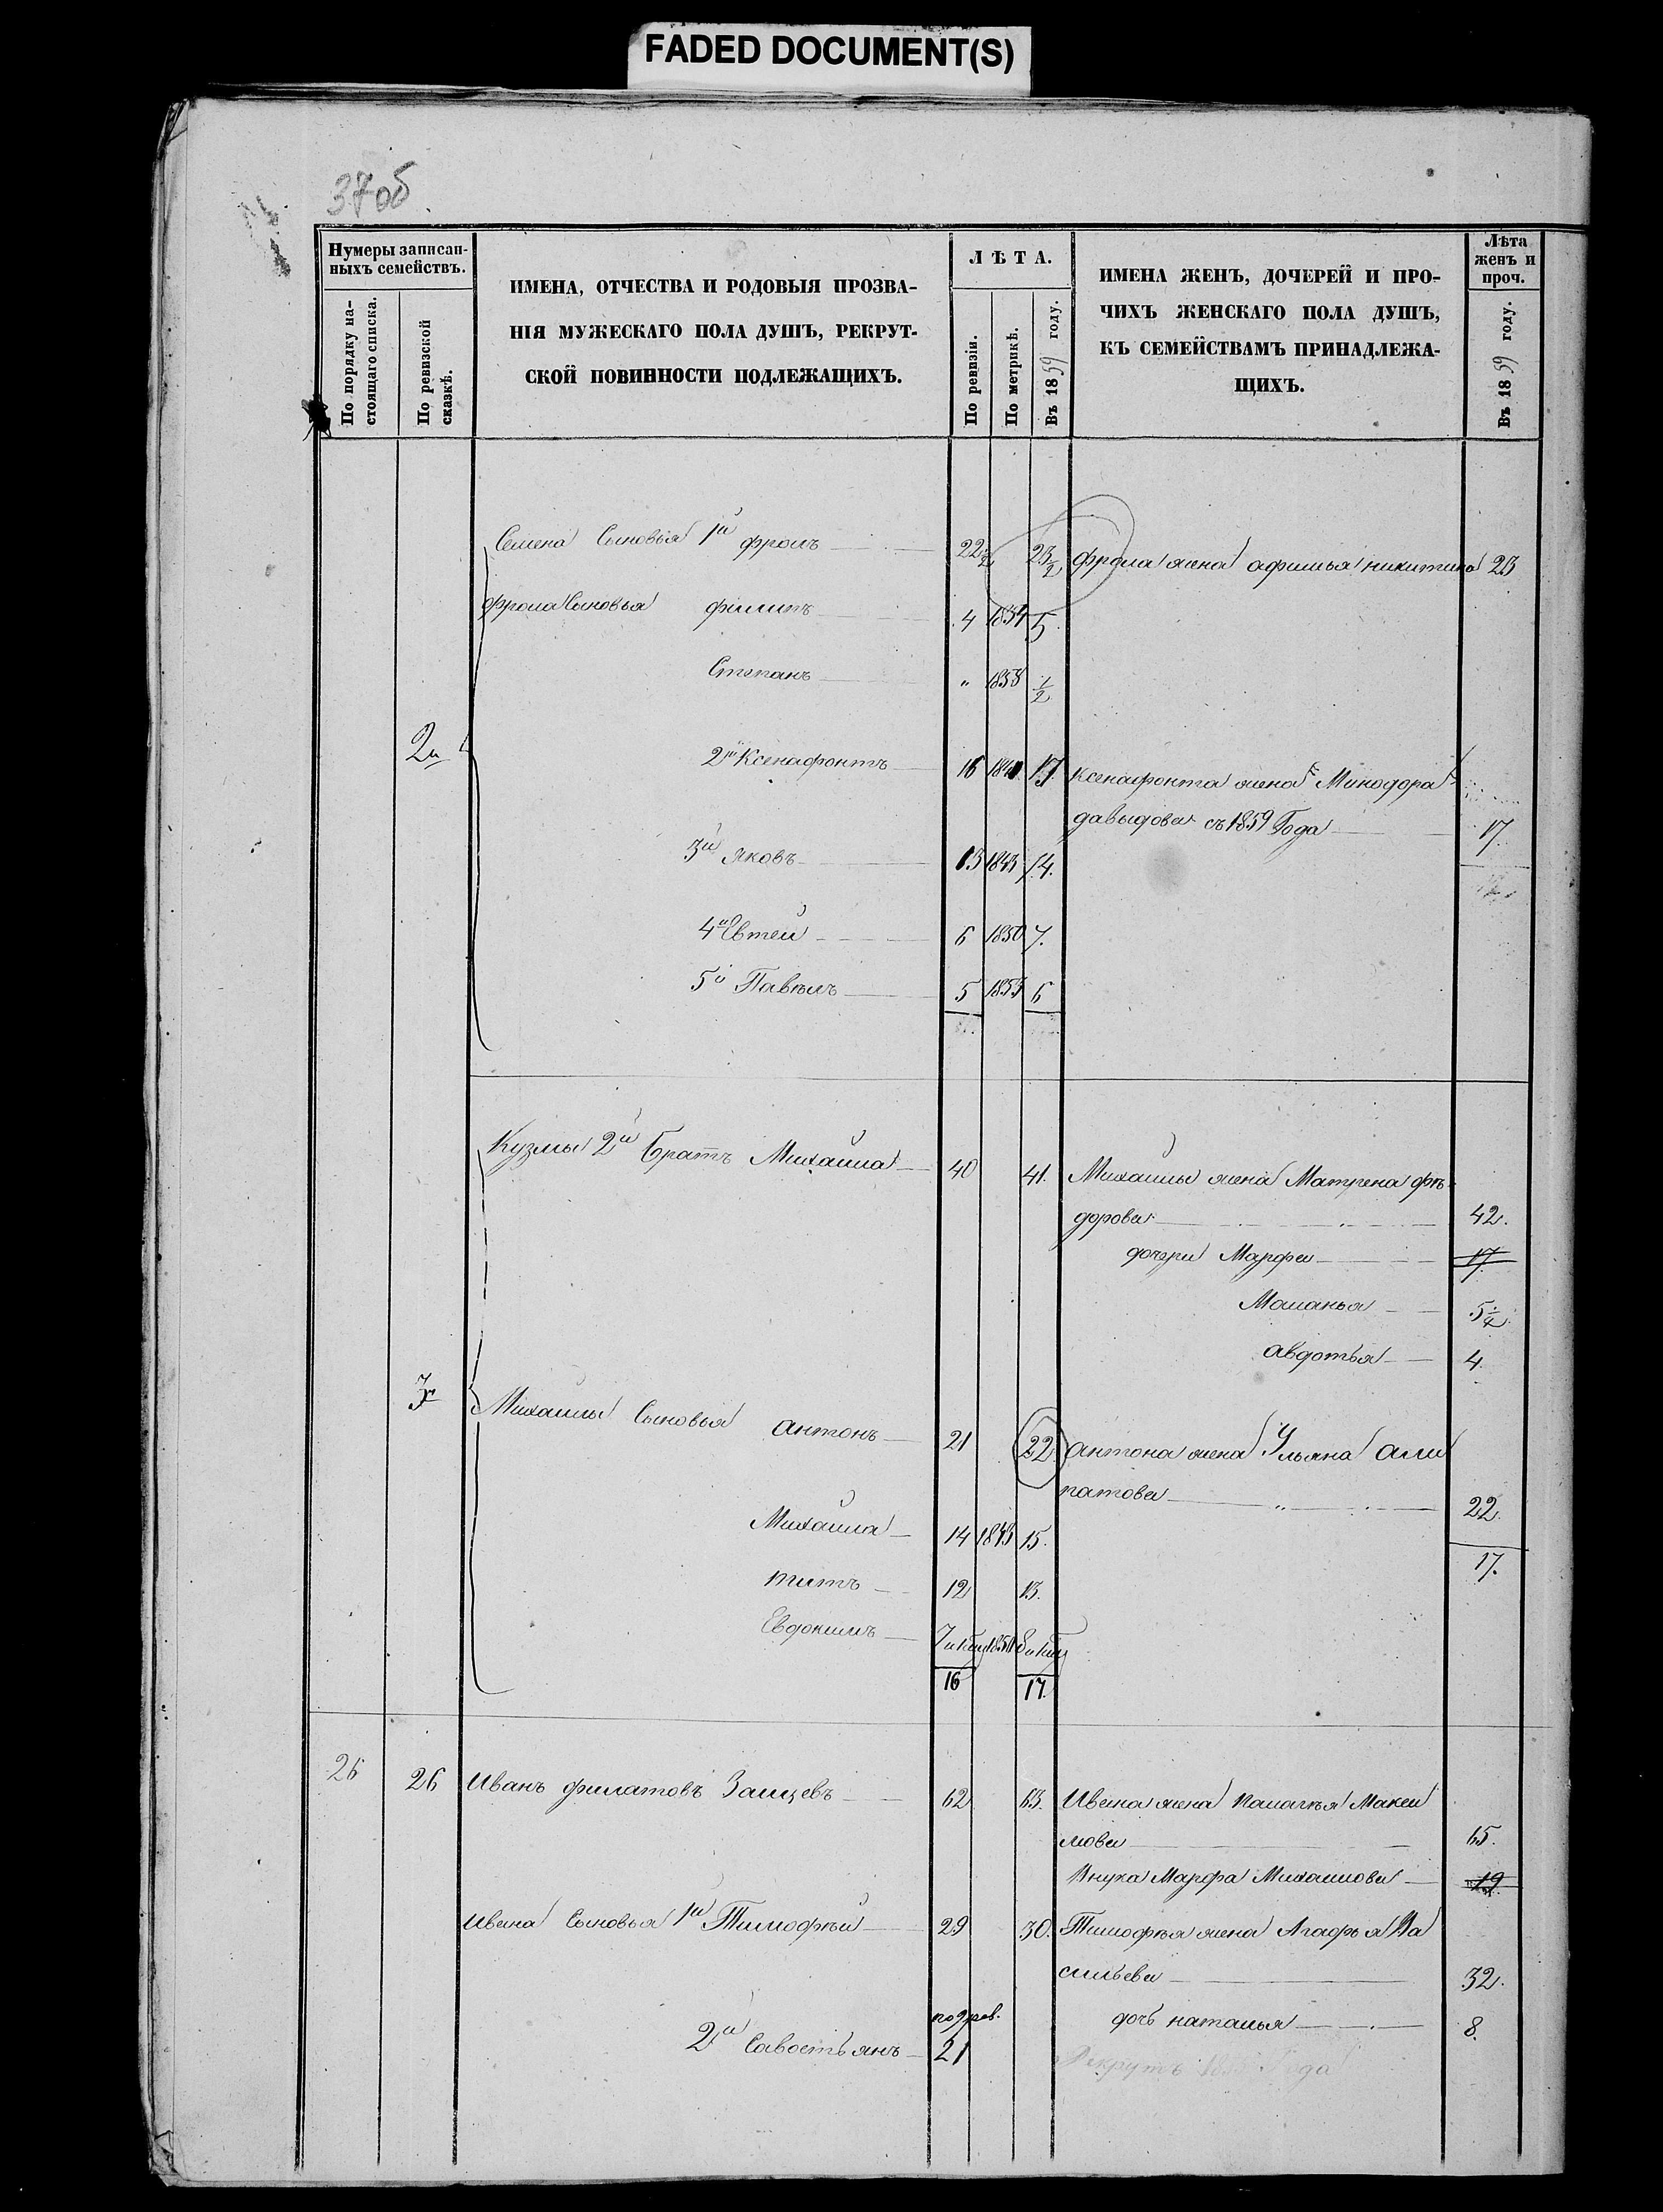 FADED DOCUMENT(S)
37об
Нумеры записан-
ныхъ семействъ.
По порядку на-
стоящаго списка.
По ревизской
сказкѣ.
ИМЕНА, ОТЧЕСТВА И РОДОВЫЯ ПРОЗВА-
НІЯ МУЖЕСКАГО ПОЛА ДУШЪ, РЕКРУТ-
СКОЙ ПОВИННОСТИ ПОДЛЕЖАЩИХЪ.
ЛѢТА.
По ревизіи.
По метрикѣ.
Въ 1859 году.
ИМЕНА ЖЕНЪ, ДОЧЕРЕЙ И ПРО-
ЧИХЪ ЖЕНСКАГО ПОЛА ДУШЪ,
КЪ СЕМЕЙСТВАМЪ ПРИНАДЛЕЖА-
ЩИХЪ.
Лѣта
женъ и
проч.
Въ 1859 году.
Семена Сыновья 1й фролъ 22½ 23½ фрола жена афимья никитина 23
фрола Сыновья филипъ 4 1854 5.
Степанъ " 1858 ½
2й Ксенафонтъ 16 1841 17 ксенафонта жена Минодора
давыдова съ 1859 Года 17.
3й яковъ 13 1843 14.
4й Евтей 6 1850 7.
5й Павелъ 5 1853 6
Кузмы 2й Братъ Михайла 40 41. Михайлы жена Матрена фе
дорова 42.
дочери Марфа 17
Маланья 5¼
авдотья 4
Михайлы Сыновья антонъ 21 22. антона жена Ульяна али
патова 22.
Михайла 14 1843 15. 17.
титъ 12 13.
Евдокимъ 7 1851 8
16 17.
26 26 Иванъ филатовъ Зайцевъ 62 63. Ивана жена палагея Макси
мова 65.
Внука Марфа Михайлова 19
ивана Сыновья 1й Тимофей 29 30. Тимофея жена Агафья Ва
сильева 32.
дочь наталья 8.
2й Савостьянъ 21 Рекрутъ Года